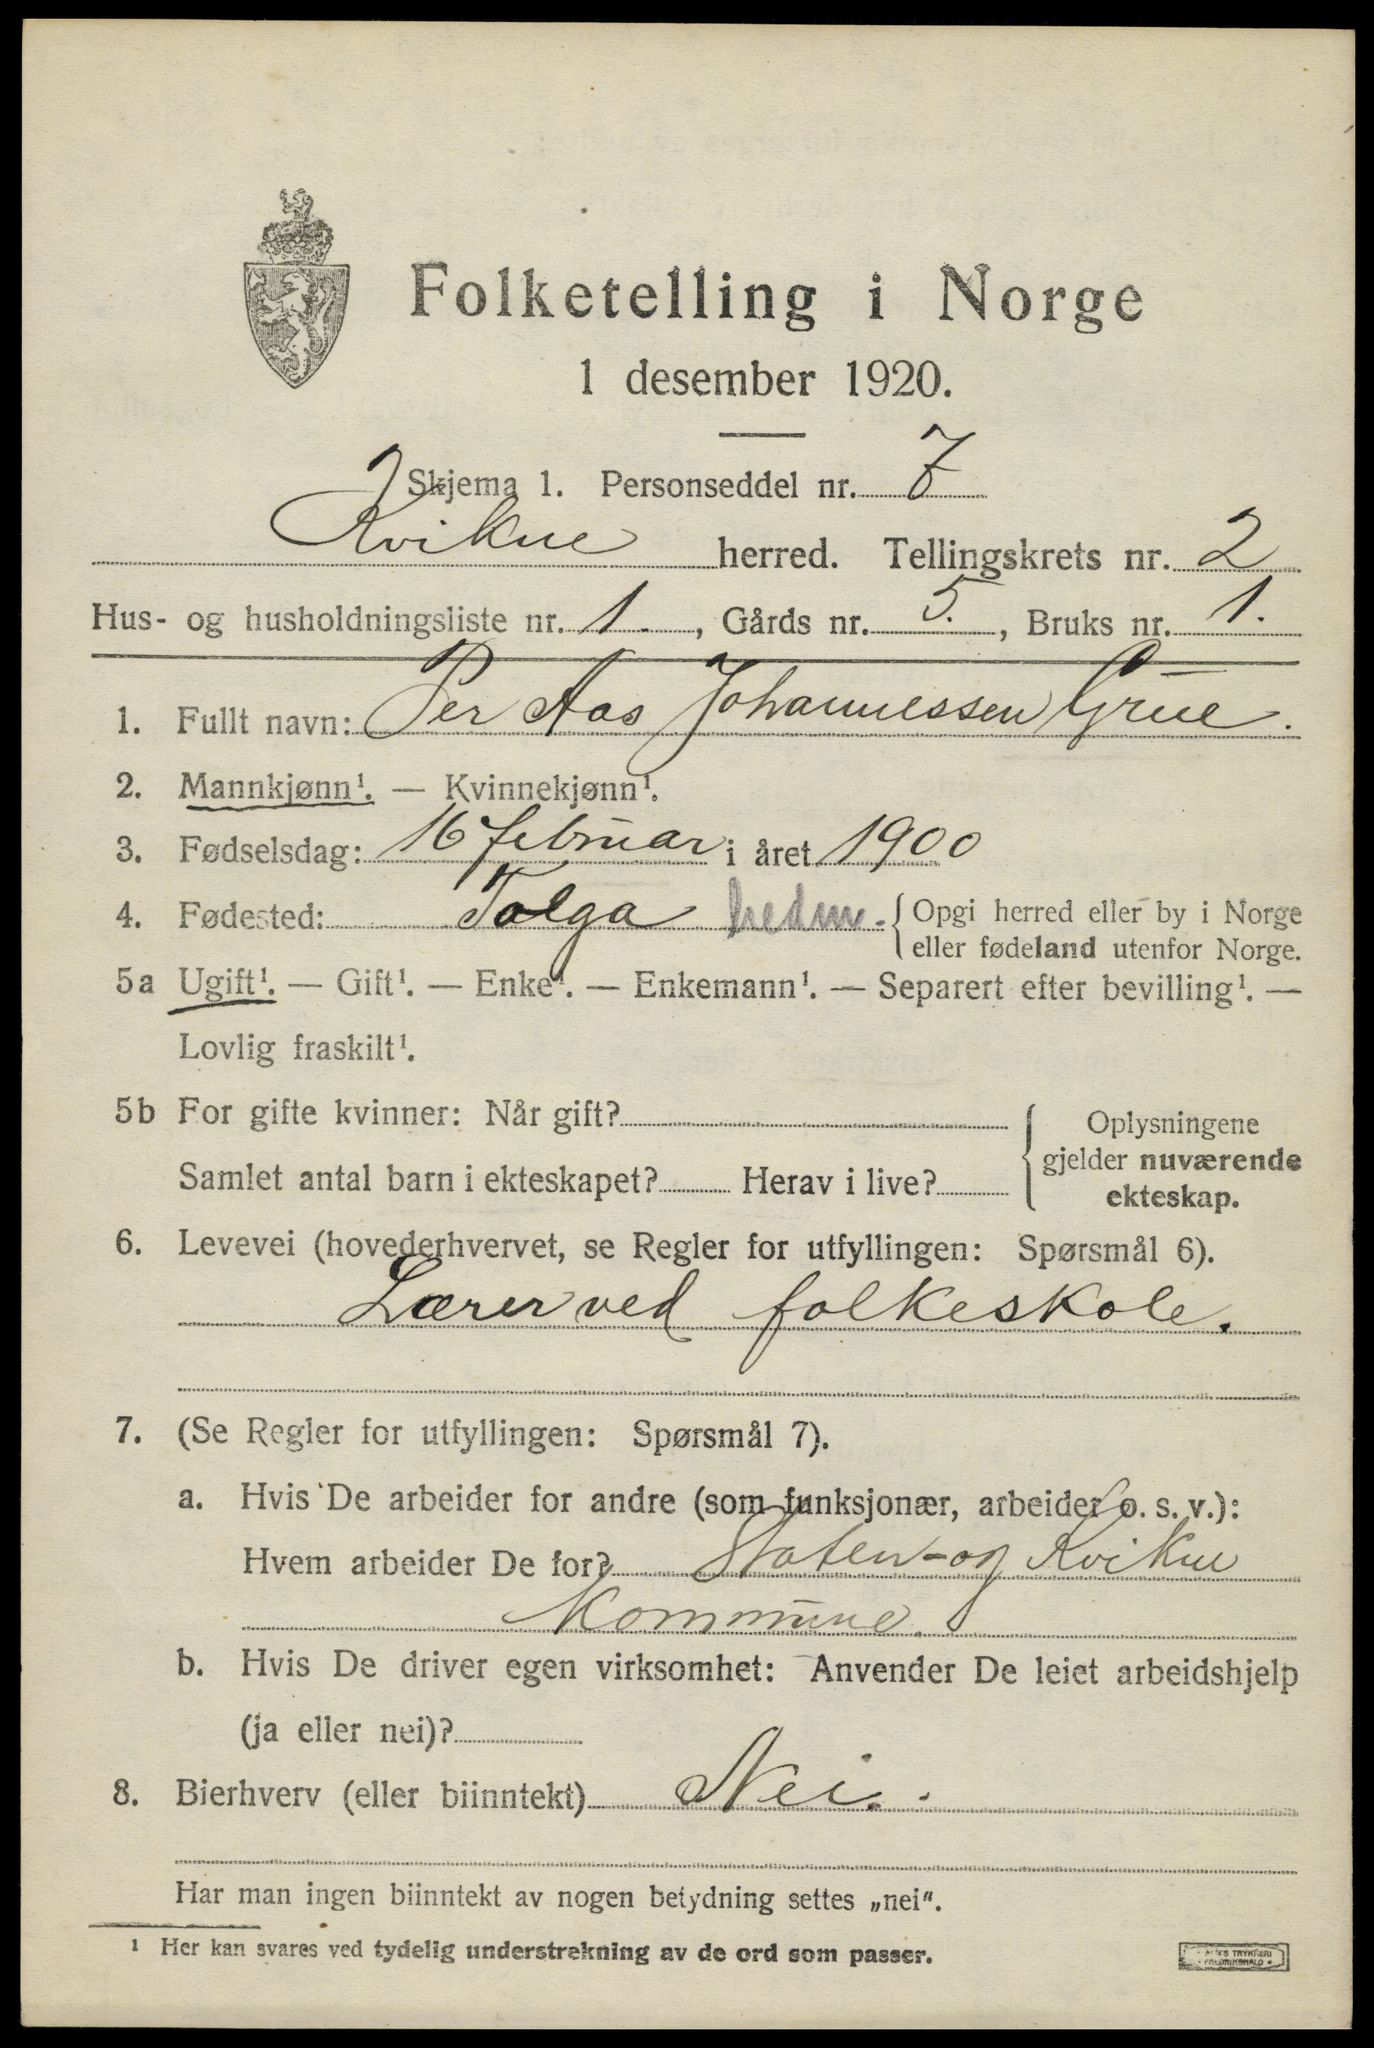 Folketelling i Norge
1 desember 1920.
Skjema 1. Personseddel nr. 7
Kvikne herred. Tellingskrets nr. 2
Hus- og husholdningsliste nr. 1., Gårds nr. 5., Bruks nr. 1.
1. Fullt navn: Per Aas Johannessen Grue.
2. Mannkjønn¹. — Kvinnekjønn¹.
3. Fødselsdag: 16 februar i året 1900
4. Fødested: Tolga hedm. { Opgi herred eller by i Norge
eller fødeland utenfor Norge.
5a Ugift¹. — Gift¹. — Enke¹. — Enkemann¹. — Separert efter bevilling¹. —
Lovlig fraskilt¹.
5b For gifte kvinner: Når gift?
Samlet antal barn i ekteskapet? Herav i live?
Oplysningene
gjelder nuværende
ekteskap.
6. Levevei (hovederhvervet, se Regler for utfyllingen: Spørsmål 6).
Lærer ved folkeskole.
7. (Se Regler for utfyllingen: Spørsmål 7).
a. Hvis De arbeider for andre (som funksjonær, arbeider o. s. v.):
Hvem arbeider De for? Staten- og Kvikne
kommune.
b. Hvis De driver egen virksomhet: Anvender De leiet arbeidshjelp
(ja eller nei)?
8. Bierhverv (eller biinntekt) Nei.
Har man ingen biinntekt av nogen betydning settes „nei“.
¹ Her kan svares ved tydelig understrekning av de ord som passer.